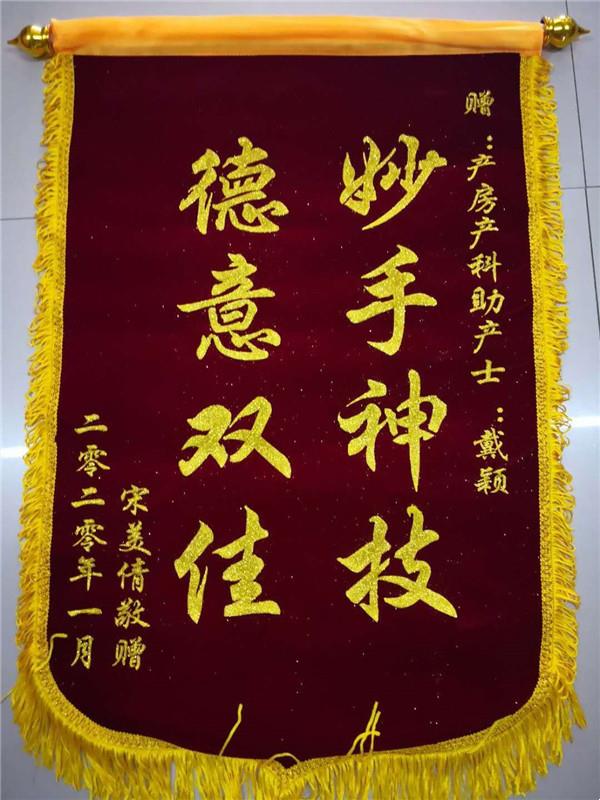 赠：产房产科助产士：戴颖
妙手神技
德意双佳
宋美倩敬赠
二零二零年一月